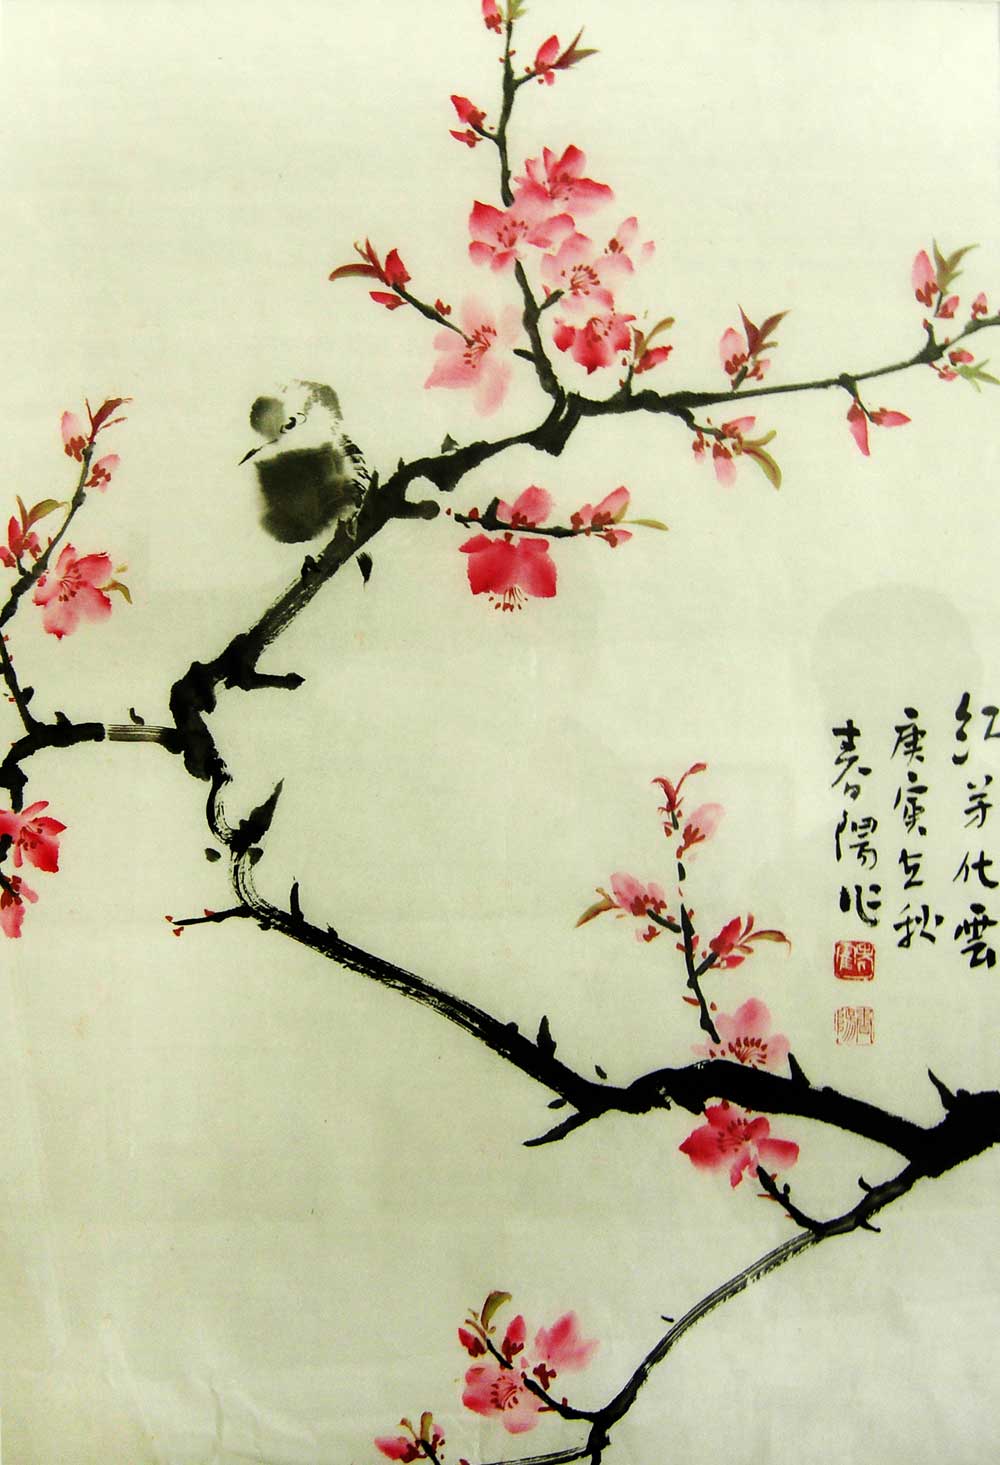 红芽化雲
庚寅之秋
春陽作